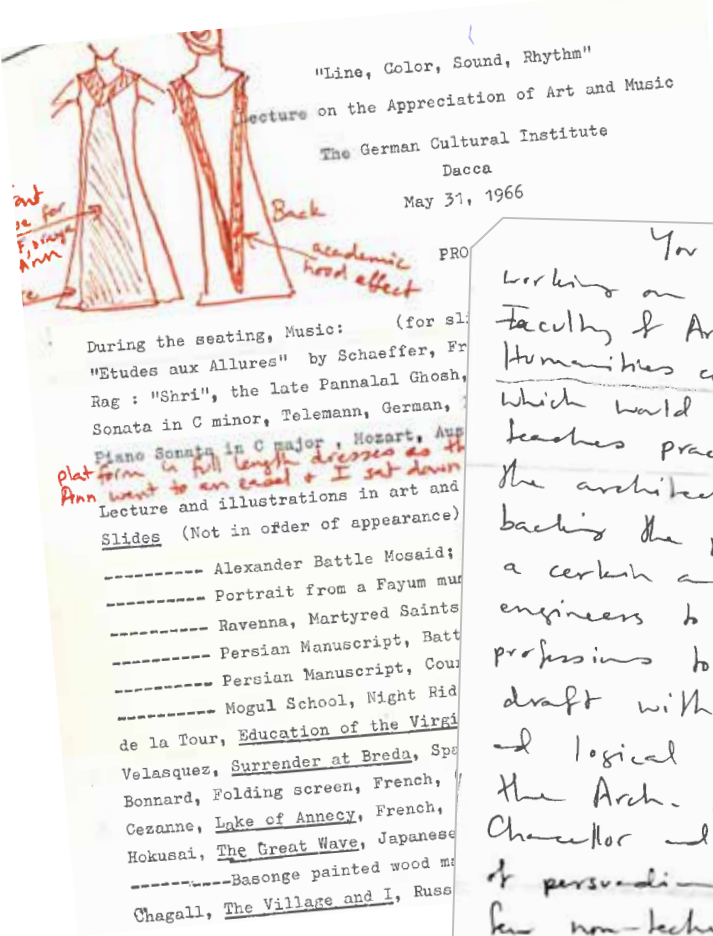 "Line, Color, Sound, Rhythm"
Lecture on the Appreciation of Art and Music
The German Cultural Institute
Dacca
May 31, 1966
for
Ann
Back
academic
hood effect
PRO
During the seating, Music: (for sli
"Etudes aux Allures" by Schaeffer, Fr
Rag : "Shri", the late Pannalal Ghosh,
Sonata in C minor, Telemann, German,
Piano Sonata in C major , Mozart, Aus
platform in full length dresses as th
Ann went to an easel & I sat down
Lecture and illustrations in art and
Slides (Not in order of appearance)
---------- Alexander Battle Mosaid;
---------- Portrait from a Fayum mum
---------- Ravenna, Martyred Saints
---------- Persian Manuscript, Batt
---------- Persian Manuscript, Cour
---------- Mogul School, Night Rid
de la Tour, Education of the Virgi
Velasquez, Surrender at Breda, Spa
Bonnard, Folding screen, French,
Cezanne, Lake of Annecy, French,
Hokusai, The Great Wave, Japanese
----------Basonge painted wood ma
Chagall, The Village and I, Russ
You
working on
Faculty of Ar
Humanities
which would
teaches prac
the architec
backing the
a certain
engineers to
professions to
draft with
and logical
the Arch.
Chancellor and
of persuadin
few non-tech